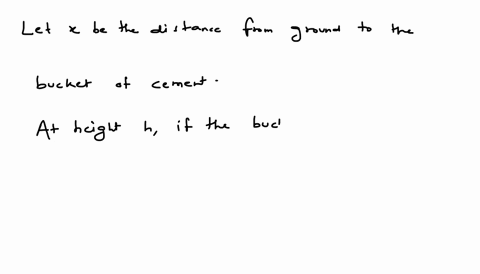 Let x be the distance from ground to the
bucket of cement.
At height h, if the buc